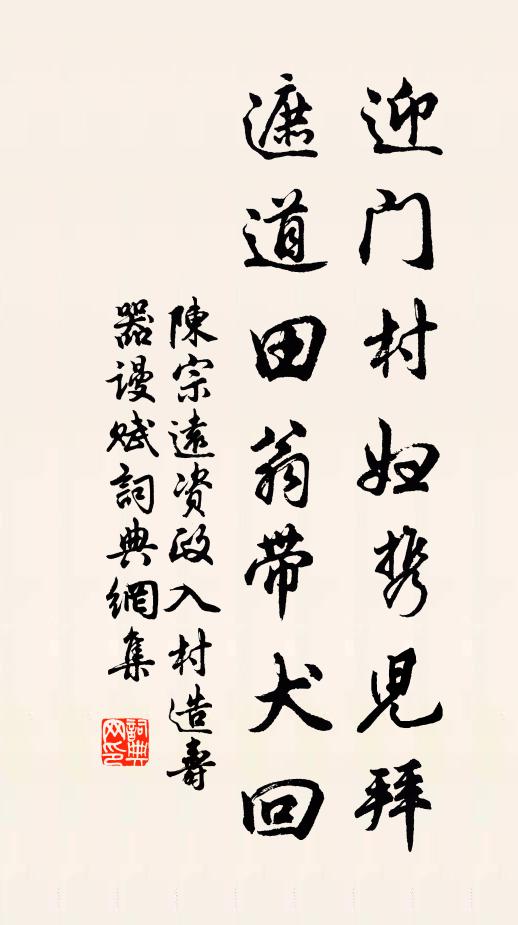 迎门村妇携児拜
遮道田翁带犬回
陳宗遠资政入村造壽
器谩赋詞典網集
詞典网印